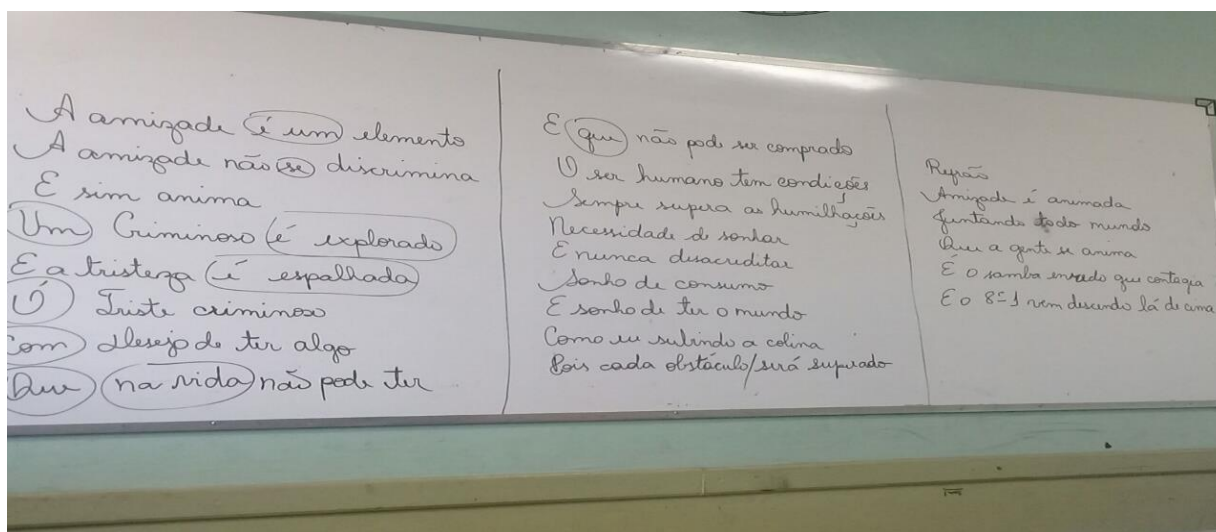 A amizade é um elemento
A amizade não se discrimina
E sim anima
Um Criminoso é explorado
E a tristeza é espalhada
O Triste criminoso
Com desejo de ter algo
Que na vida não pode ter
E que não pode ser comprado
O ser humano tem condições
Sempre supera as humilhações
Necessidade de sonhar
E nunca desacreditar
Sonho de consumo
E sonho de ter o mundo
Como eu subindo a colina
Pois cada obstáculo/será superado
Refrão
Amizade é animada
Juntando todo mundo
Que a gente se anima
É o samba enredo que contagia
E o 8º 1 vem descendo lá de cima